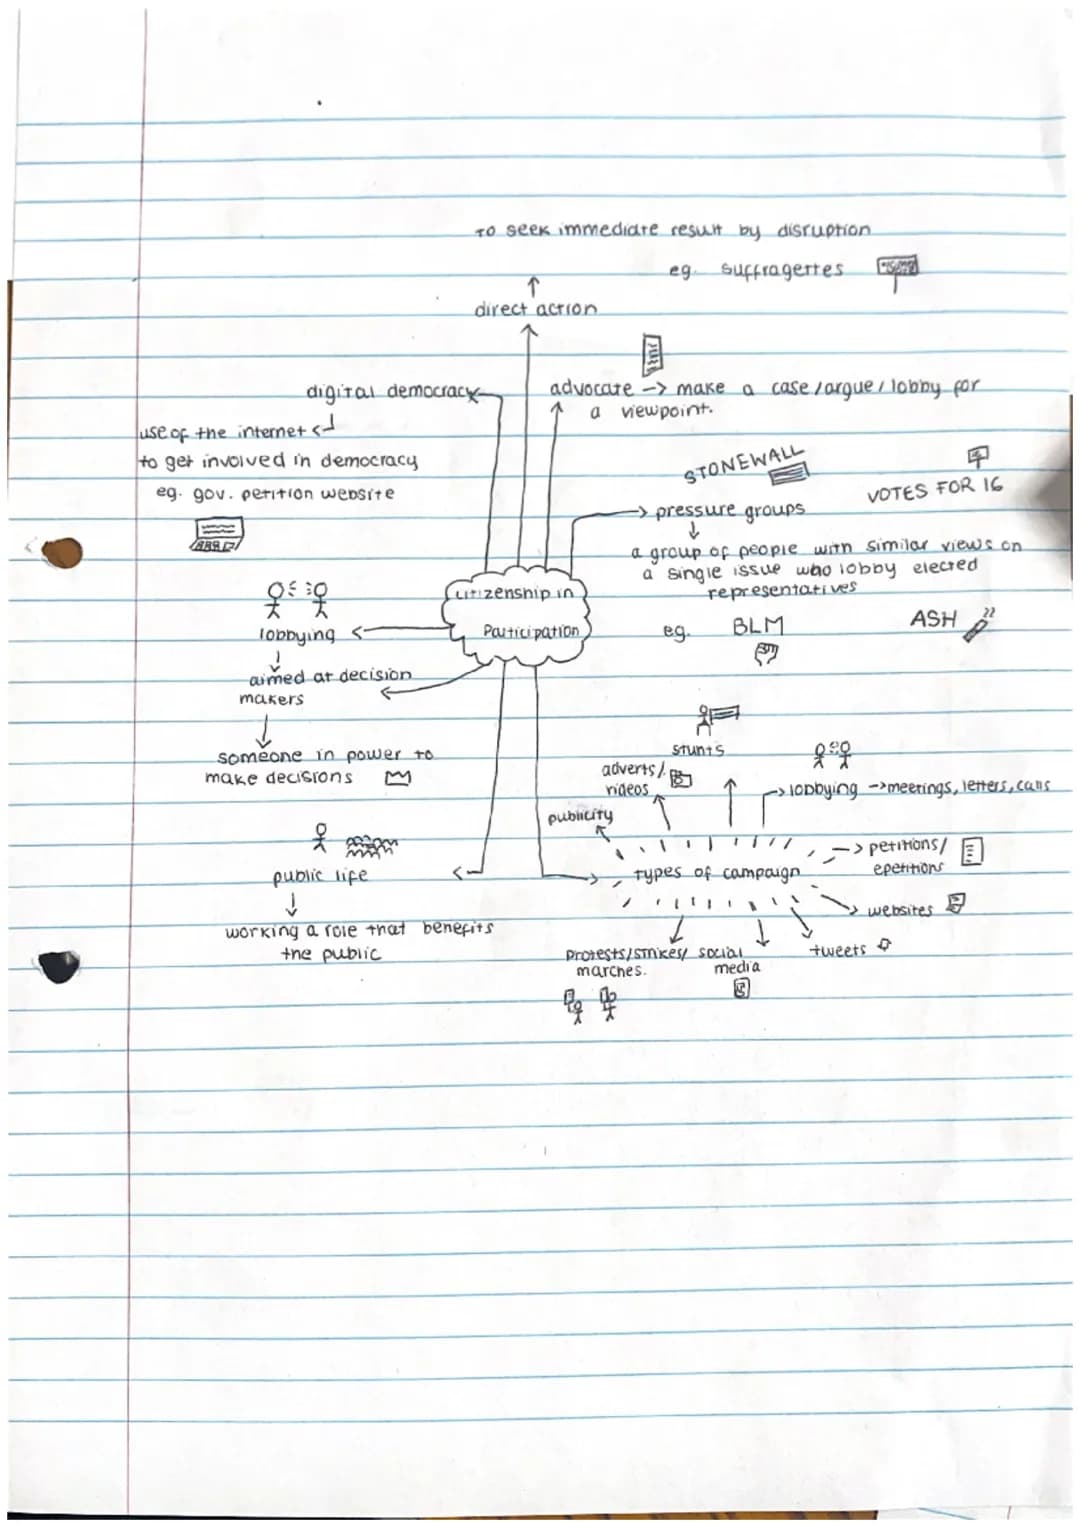 to seek immediate result by disruption
eg. suffragettes
direct action
digital democracy
use of the internet
to get involved in democracy
eg. gov. petition website
advocate -> make a case/argue/lobby for
a viewpoint.
STONEWALL
VOTES FOR 16
pressure groups
a group of people with similar views on
a single issue who lobby elected
representatives
eg. BLM
ASH
citizenship in
Participation
lobbying
aimed at decision
makers
someone in power to
make decisions
public life
working a role that benefits
the public
types of campaign
publicity
adverts/
videos
stunts
lobbying -> meetings, letters, calls
petitions/
epetitions
websites
tweets
social
media
protests/strikes/
marches.